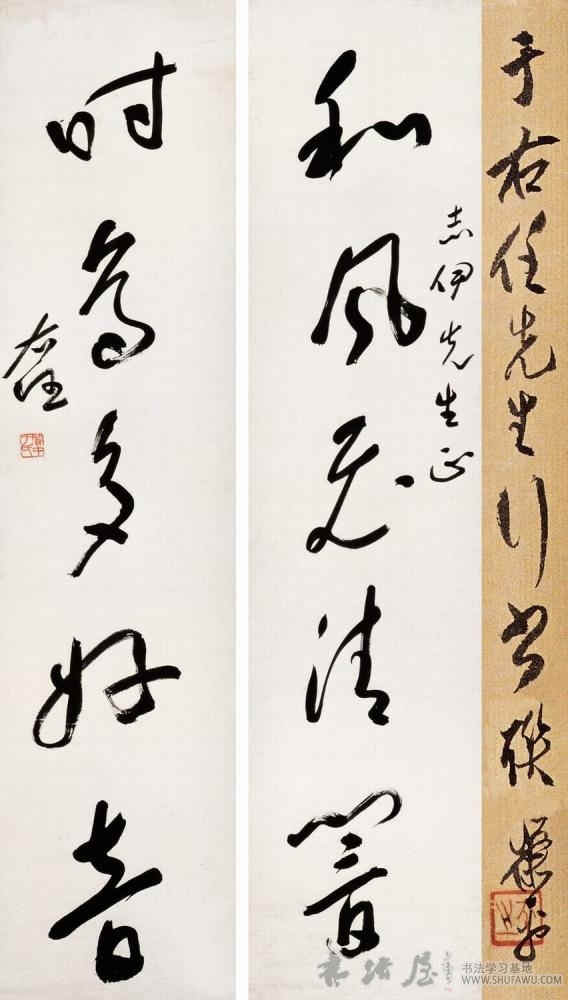 于右任先生行書聯
志伊先生正
和風飛清響
時鳥多好音
右任
關中于氏
書法屋
书法学习基地
WWW.SHUFAWU.COM